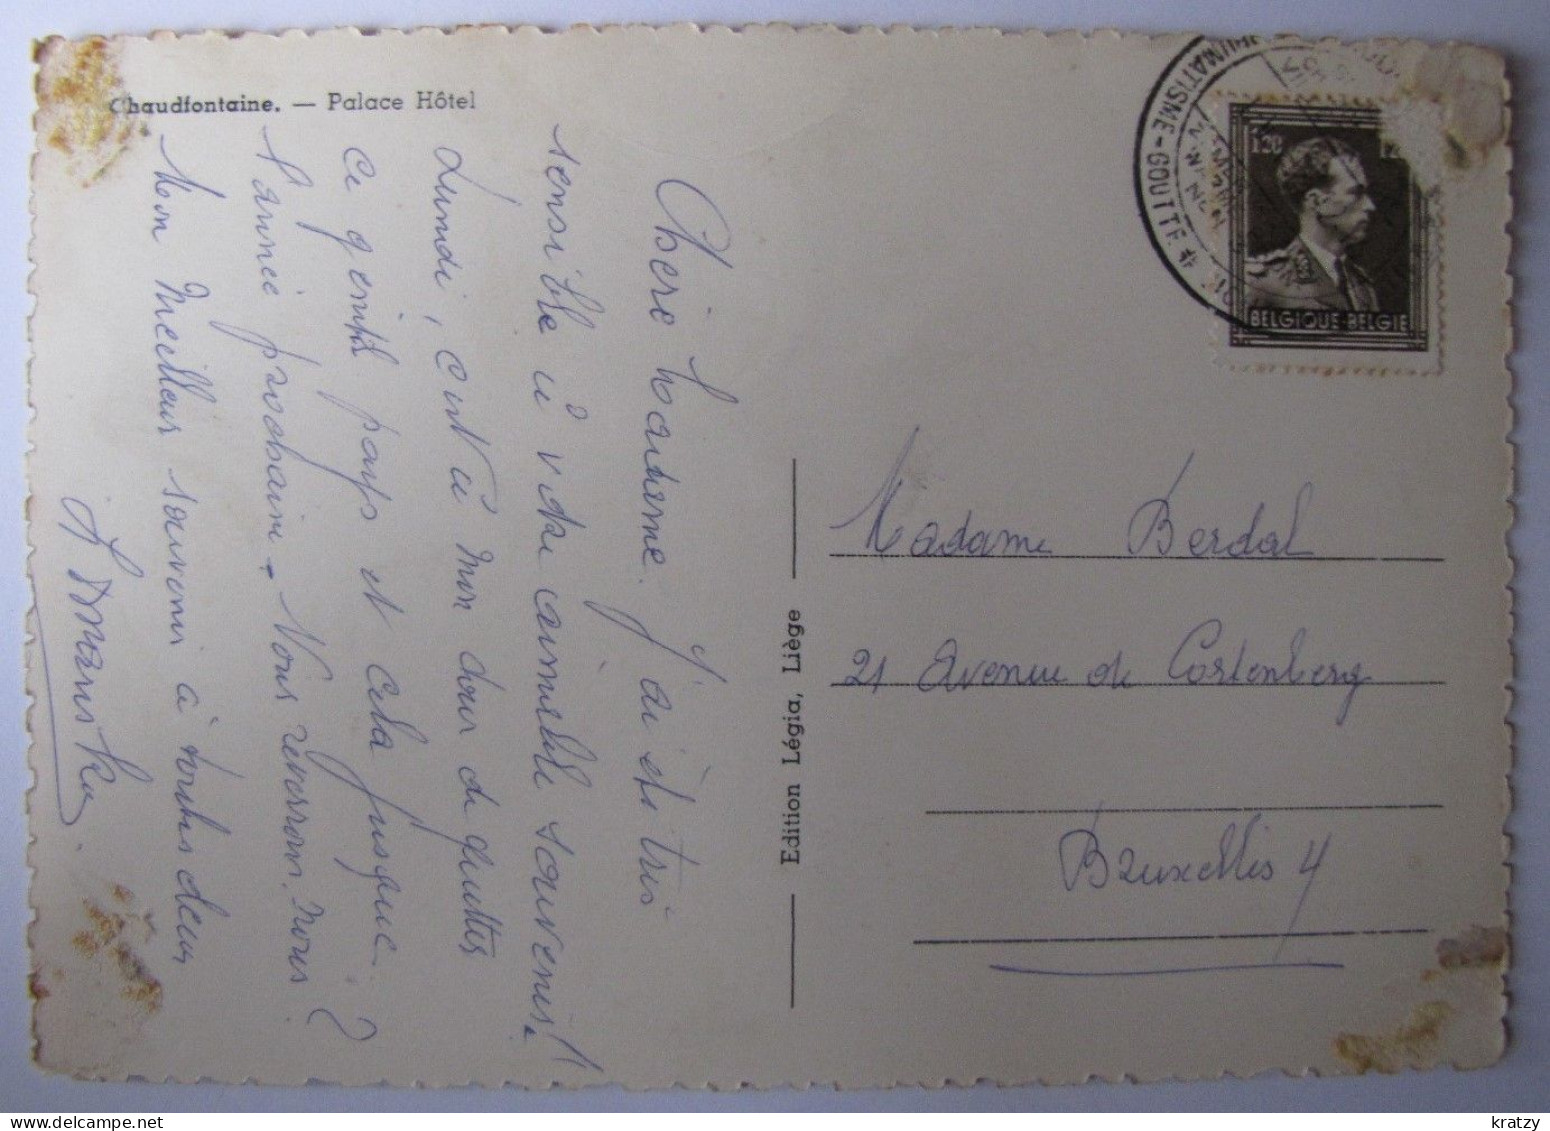 Chaudfontaine. — Palace Hôtel
Chère Madame. J'ai été très
sensible à votre aimable souvenir.
Lundi, c'est à mon tour de quitter
ce gentil pays et cela jusque
l'année prochaine. Nous reverrons-nous ?
Mon meilleur souvenir à toutes deux
Edition Légia, Liège
RHUMATISME - GOUTTE *
1.50
BELGIQUE-BELGIE
Madame Berdal
21 Avenue de Cortenberg
Bruxelles 4
kratzy